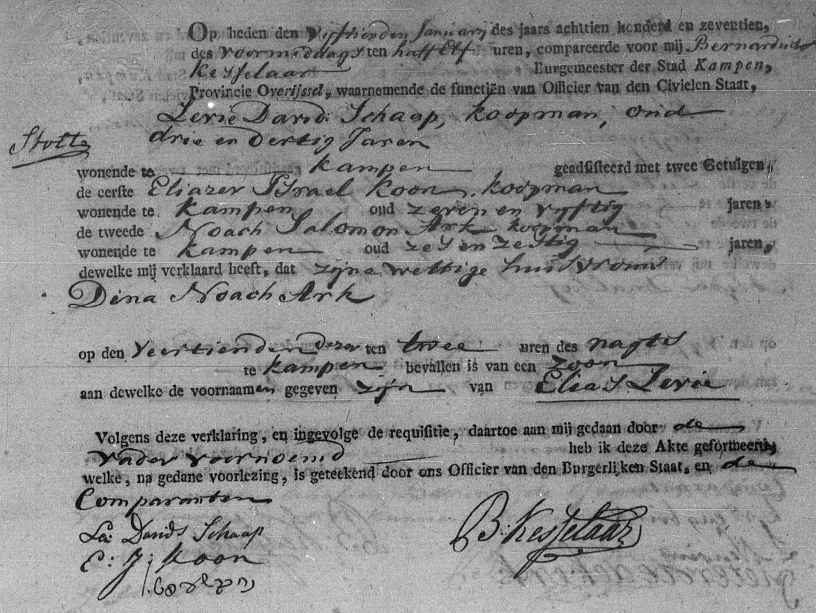 Op heden den Vyftienden January des jaars achttien honderd en zeventien,
des voormiddags ten half Elf uren, compareerde voor mij Bernardus
Kesselaar Burgemeester der Stad Kampen,
Provincie Overijssel, waarnemende de functiën van Officier van den Civielen Staat,
Levie David Schaap, koopman, oud
drie en dertig Jaren
wonende te kampen geadsisteerd met twee Getuigen,
de eerste Eliazer Israel Koon, koopman
wonende te kampen oud zeven en vyftig jaren,
de tweede Noach Salomon Ark koopman
wonende te kampen oud zes en zestig jaren,
dewelke mij verklaard heeft, dat zijne wettige huisvrouw
Dina Noach Ark
op den Veertienden dezer ten twee uren des nagts
te kampen bevallen is van een zoon
aan dewelke de voornaamen gegeven zijn van Elias Levie
Volgens deze verklaring, en ingevolge de requisitie, daartoe aan mij gedaan door de
vader voornoemd heb ik deze Akte geformeerd,
welke, na gedane voorlezing, is geteekend door ons Officier van den Burgerlijken Staat, en de
Comparanten
Le: Davids Schaap
E: J: Koon
B: Kesselaar